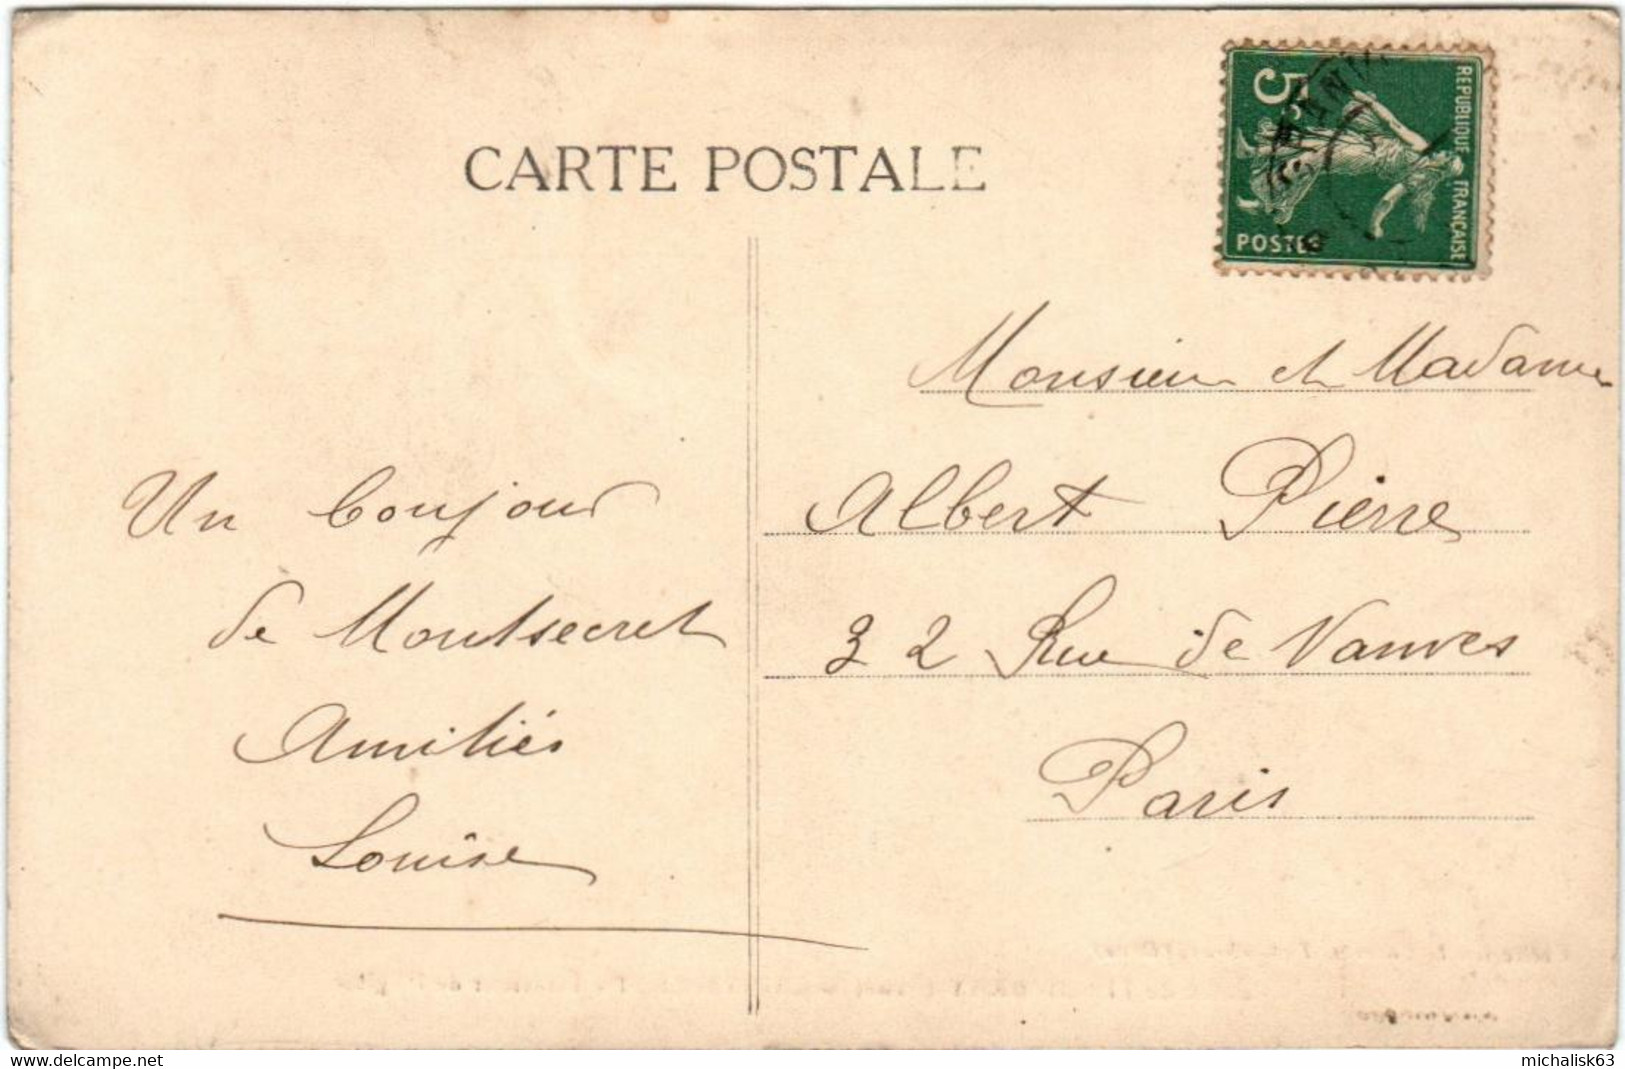 CARTE POSTALE
5
REPUBLIQUE FRANÇAISE
POSTES
Monsieur et Madame
Albert Pierre
32 Rue de Vanves
Paris
Un bonjour
de Montsecret
Amitiés
Louise
michalisk63